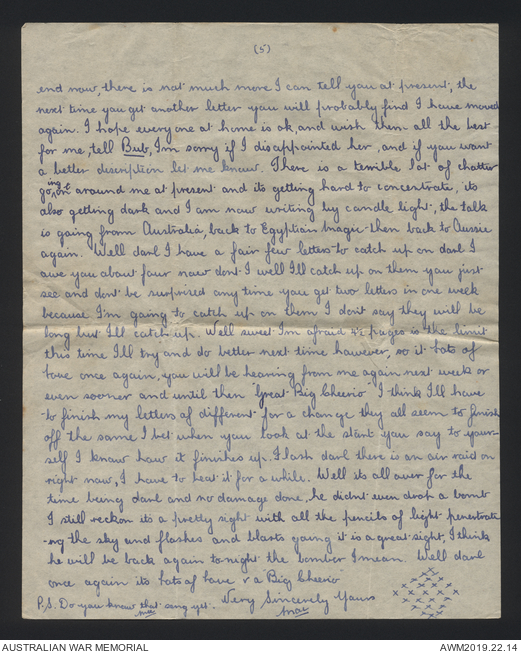 (5)
end now, there is not much more I can tell you at present, the
next time you get another letter you will probably find I have moved
again. I hope everyone at home is ok, and wish them all the best
for me, tell Bub, I'm sorry if I disappointed her, and if you want
a better description let me know. There is a terrible lot of chatter
going on around me at present and its getting hard to concentrate, its
also getting dark and I am now writing by candle light, the talk
is going from Australia, back to Egyptian magic then back to Aussie
again. Well darl I have a fair few letters to catch up on darl I
owe you about four now dont I well I'll catch up on them you just
see and dont be surprised any time you get two letters in one week
because I'm going to catch up on them I dont say they will be
long but I'll catch up. Well sweet I'm afraid 4½ pages is the limit
this time I'll try and do better next time however, so it lots of
love once again, you will be hearing from me again next week or
even sooner and until then "Great Big Cheerio" I think I'll have
to finish my letters of different for a change they all seem to finish
off the same I bet when you look at the start you say to your-
self I know how it finishes up. Flash darl there is an air raid on
right now, I have to beat it for a while. Well its all over for the
time being darl and no damage done, he didnt even drop a bomb
I still reckon its a pretty sight with all the pencils of light penetrate
-ing the sky and flashes and blasts going it is a great sight, I think
he will be back again tonight the bomber I mean. Well darl
once again its lots of love & a Big Cheerio
Very Sincerely Yours
P.S. Do you know that song yet.
AUSTRALIAN WAR MEMORIAL
AWM2019.22.14